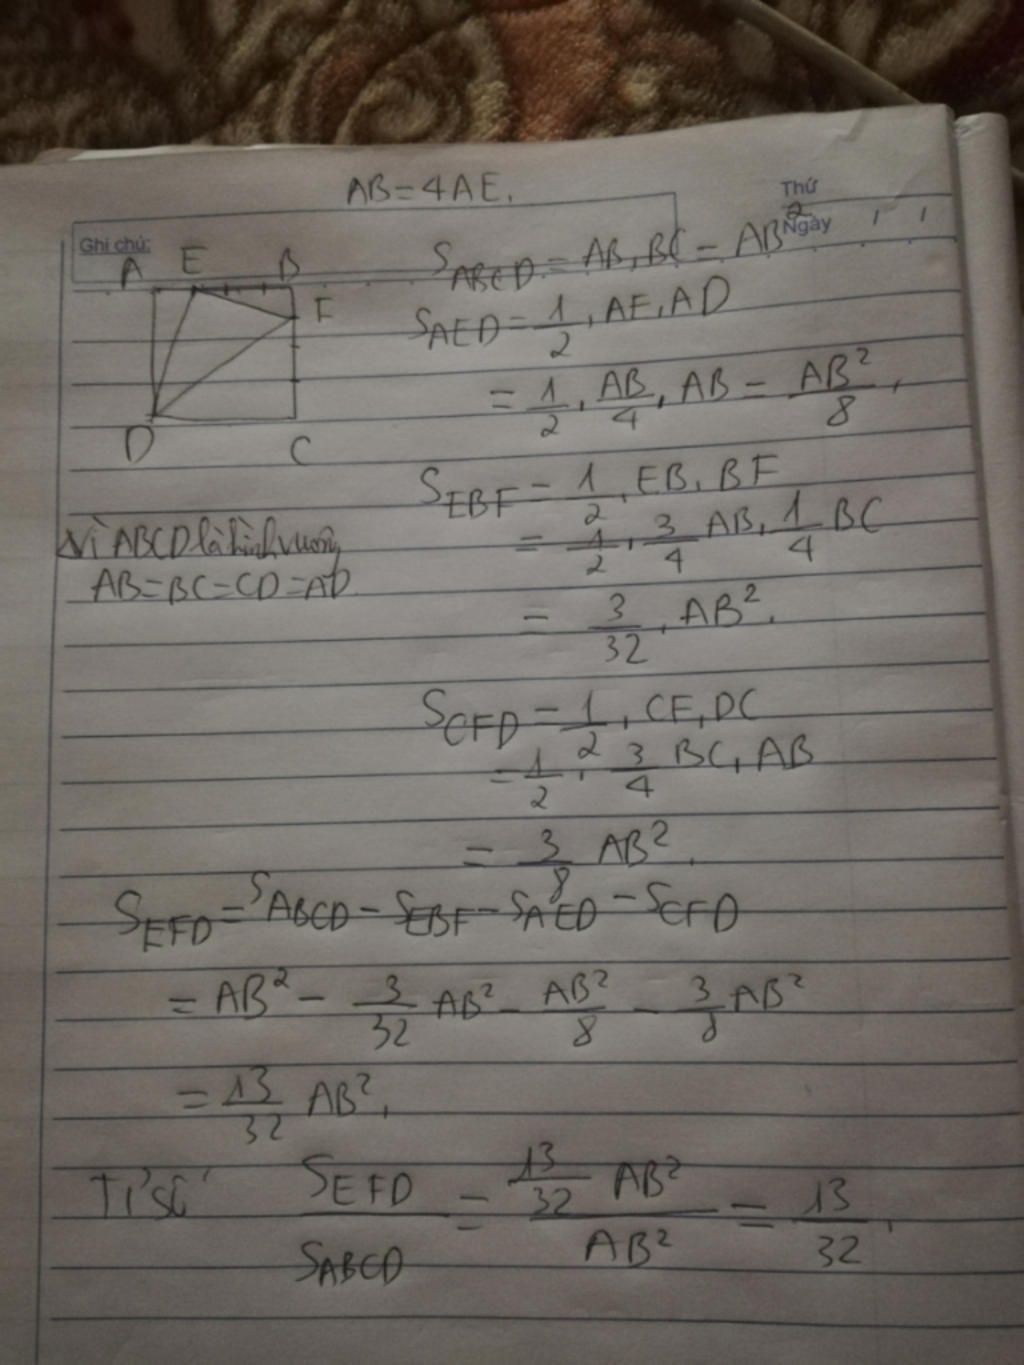 AB = 4AE.
Thứ
Ghi chú:
Ngày
A E B
F
D C
S_ABCD = AB.BC = AB²
S_AED = 1/2 . AE.AD
= 1/2 . AB/4 . AB = AB²/8.
S_EBF = 1/2 . EB.BF
= 1/2 . 3/4 AB. 1/4 BC
Vì ABCD là hình vuông
AB=BC=CD=AD
= 3/32 . AB².
S_CFD = 1/2 . CF.DC
= 1/2 . 3/4 BC.AB
= 3/8 AB².
S_EFD = S_ABCD - S_EBF - S_AED - S_CFD
= AB² - 3/32 AB² - AB²/8 - 3/8 AB²
= 13/32 AB².
Tỉ số S_EFD/S_ABCD = (13/32 AB²)/AB² = 13/32.